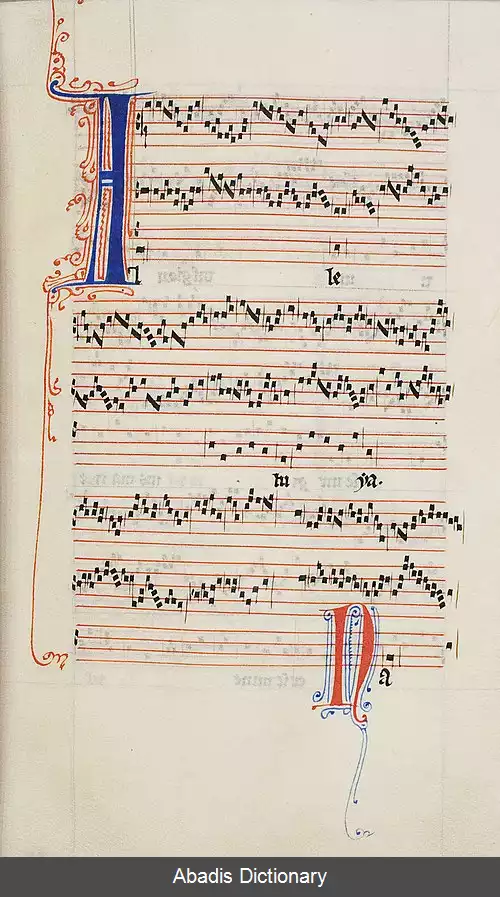 A
l le
lu ya.
N a
Abadis Dictionary